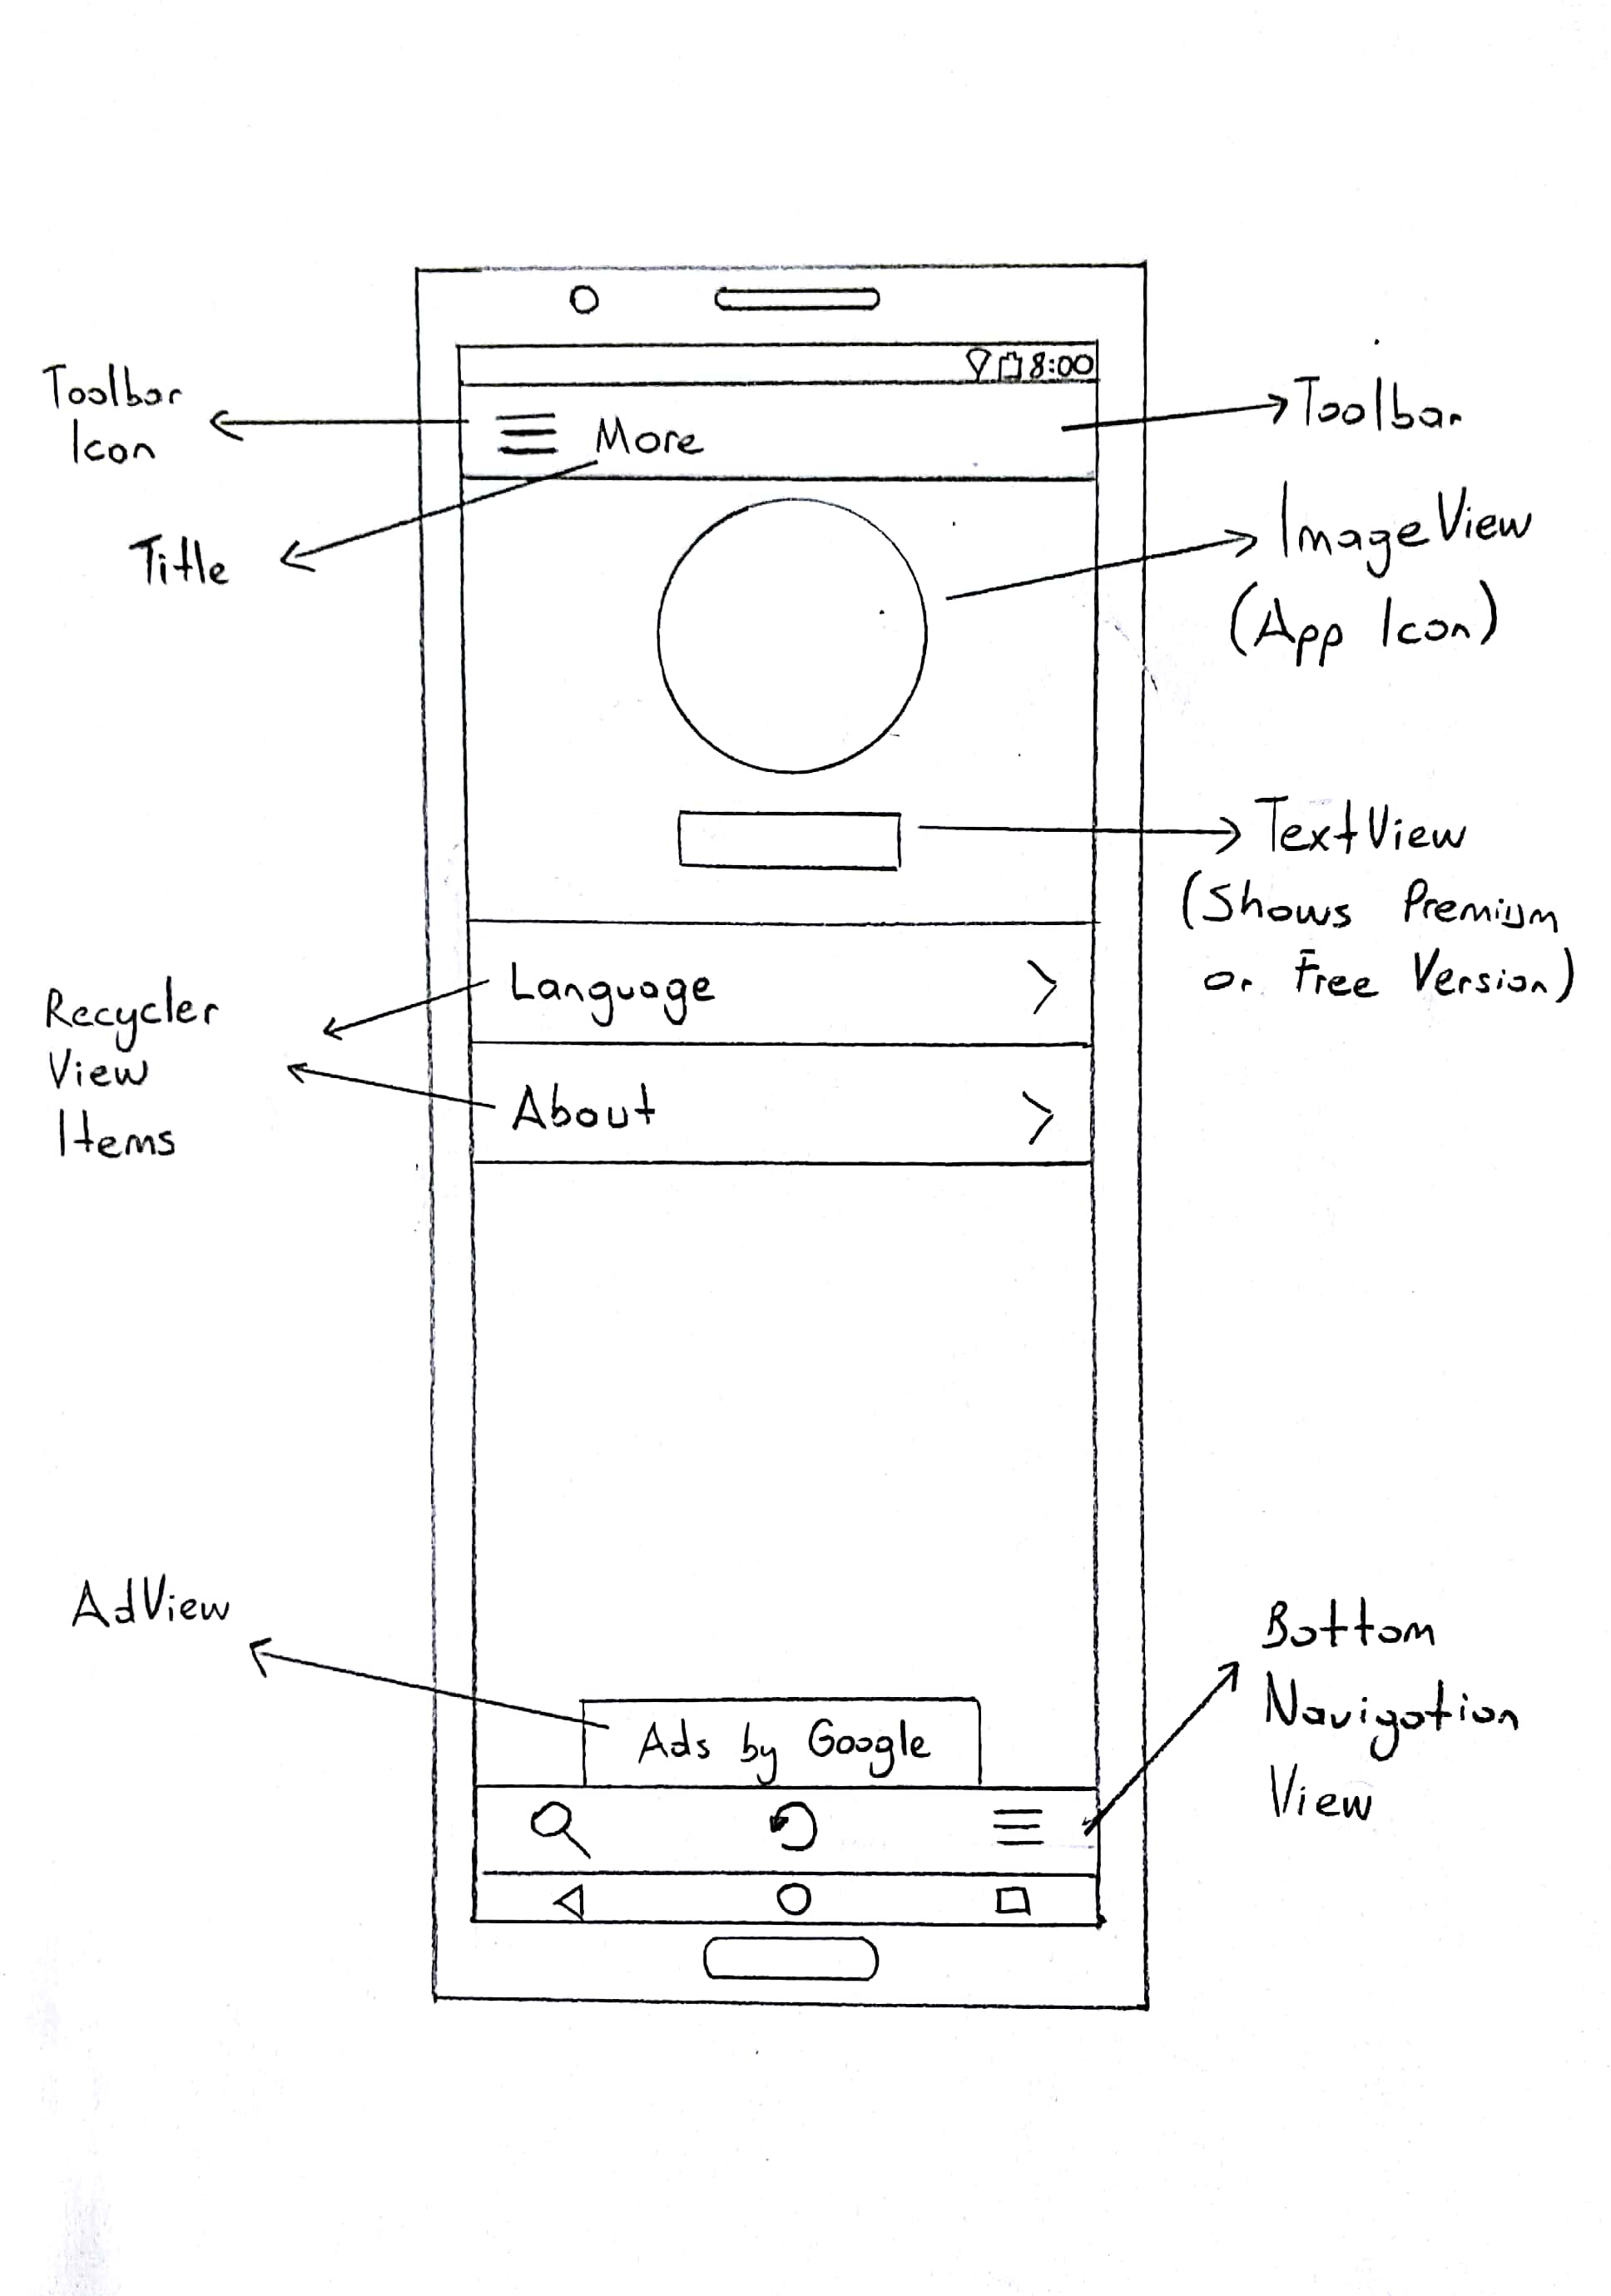 8:00
Toolbar
Icon
More
Toolbar
Title
ImageView
(App Icon)
TextView
(Shows Premium
or Free Version)
Language
Recycler
View
Items
About
AdView
Ads by Google
Bottom
Navigation
View